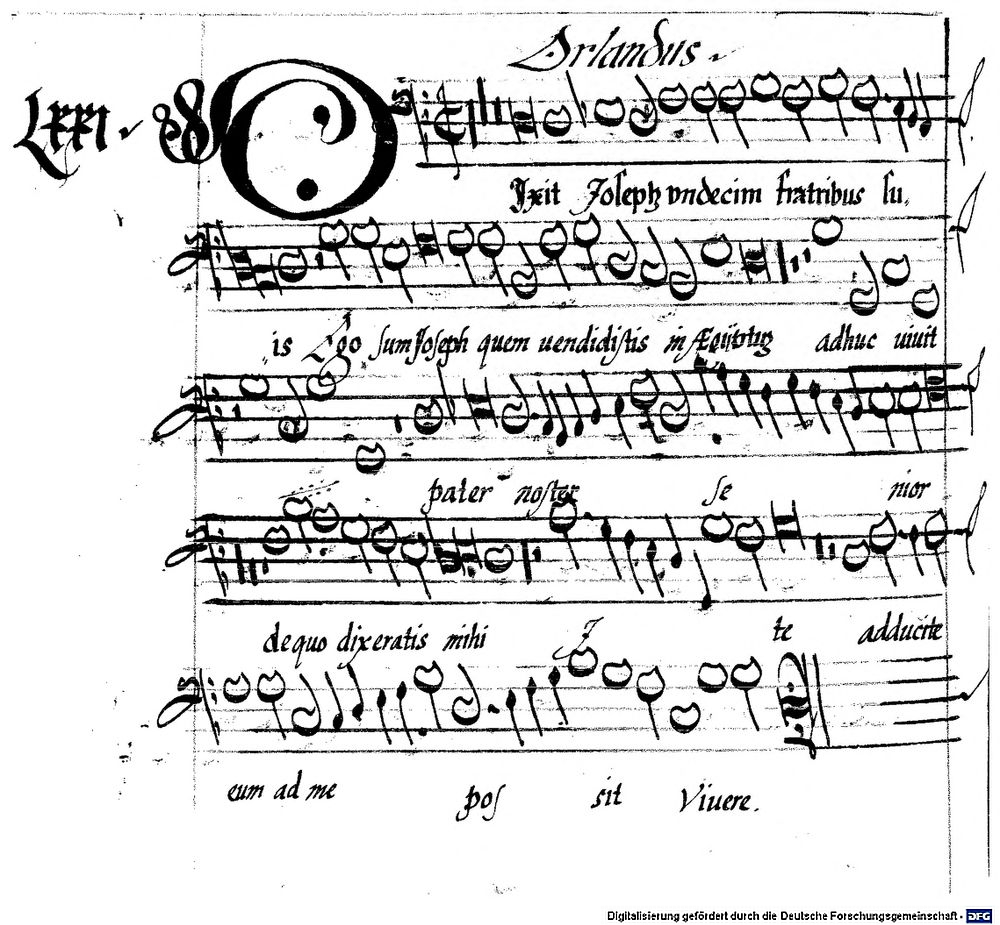 Orlandus
LXXI
DIxit Joseph vndecim fratribus su,
is Ego sum Joseph quem uendidistis in Ægijptuz adhuc uiuit
pater noster se nior
de quo dixeratis mihi I te adducite
eum ad me pos sit Viuere.
Digitalisierung gefördert durch die Deutsche Forschungsgemeinschaft - DFG